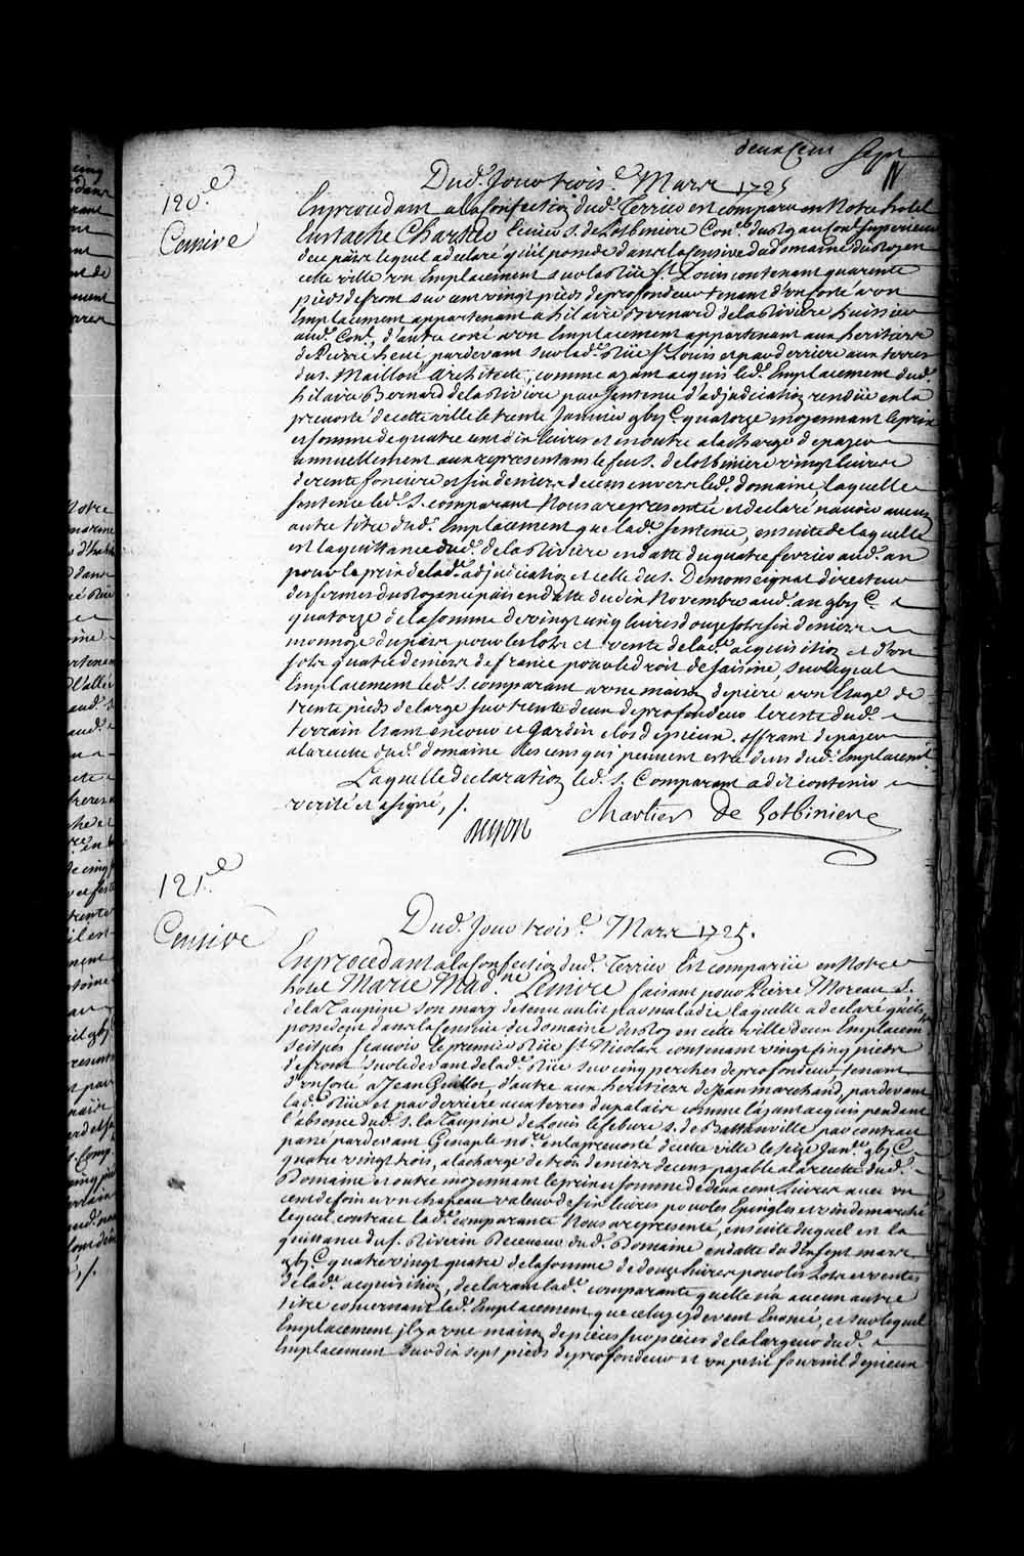 deux Cent sept
120.e
Censive
Dud. Jour trois.e Mars 1725
En procedant a la Confection dud. Terrier est comparu en Notre hotel
Eustache Chartier Ecuier S. de Lotbiniere Con.er du Roy au Con.l Superieur
de ce païs lequel a declaré qu'il possede dans la Censive du domaine du Roy en
cette ville un Emplacement sur la Rüe S.t Louis contenant quarente
pieds de front sur cent vingt pieds de profondeur tenant d'un costé a un
Emplacement appartenant a hilaire Bernard de la Riviere huissier
aud. Con.l, d'autre costé a un Emplacement appartenant aux heritiers
de Pierre hené, pardevant sur lad.e Rüe S.t Louis et par derriere aux terres
du S. Maillou architecte, comme ayant acquis led. Emplacement dud.
hilaire Bernard de la Riviere par sentence d'adjudication rendüe en la
prevosté de cette ville le trente Janvier gbij C. quatorze moyennant le prix
et somme de quatre cent dix livres et en outre a la charge de payer
annuellement aux representans le feu S. de Lotbiniere vingt livres
de rente fonciere et six deniers de cens envers led. domaine, laquelle
sentence led. S. comparant Nous a representée et declaré n'avoir aucun
autre titre dud. Emplacement que lad. sentence, ensuite de laquelle
est la quittance dud. de la Riviere en datte du quatre fevrier aud. an
pour le prix de lad.e adjudication et celle du S. Demonseignat directeur
des fermes du Roy en ce païs en datte du dix Novembre aud. an gbij C.
quatorze de la somme de vingt cinq livres douze sols six deniers
monnoye du païs pour les lots et vente de lad.e acquisition et d'un
sols quatre deniers de france pour le droit de saisine, sur lequel
Emplacement led. S. comparant a une maison de piere a un Etage de
trente pieds de large sur trente deux de profondeur le reste dud.
terrain Etant en cour et Jardin clos de pieux. offrant de payer
a la recette dud. domaine les cens qui peuvent estre deus dud. Emplacem.t
Laquelle declaration led. S. Comparant a dit contenir
verité et a signé, /.
Chartier De Lotbiniere
121.e
Censive
Dud. Jour trois.e Mars 1725.
En procedant a la Confection dud. Terrier Est comparüe en Notre
hotel Marie Mad.ne Lemire faisant pour Pierre Moreau S.
de la Taupine son mary detenu au lit par maladie laquelle a declaré qu'ils
possedent dans la Censive du domaine du Roy en cette ville deux Emplacem
scitués scavoir le premier Rüe S.t Nicolas contenant vingt cinq pieds
de front sur le devant de lad.e Rüe sur cinq perches de profondeur tenant
d'un costé a Jean Guillot, d'autre aux heritiers de Jean marchand, pardevant
lad.e Rüe et par derriere aux terres du palais comme l'ayant acquis pendant
l'absence dud. S. la Taupine de Louis lefebure S. de Battanville par contract
passé pardevant Genaple no.re en la prevosté de cette ville le seize Jan.er gbj C.
quatre vingt trois, a la charge de trois deniers de cens payable a la recette dud.
Domaine et outre moyennant le prix et somme de deux cent Livres avec un
cent de foin et un chapeau valeur de six livres pour les Epingles et vin de marché
lequel contract lad.e comparante Nous a representé, ensuite duquel est la
quittance du S. Riverin Receveur dud. Domaine en datte du dix sept mars
gbj C. quatre vingt quatre de la somme de douze livres pour les Lots et ventes
de lad.e acquisition, declarant lad.e comparante quelle n'a aucun autre
titre concernant led. Emplacement que celuy cy devant Enoncé, et sur lequel
Emplacement il y a une maison de pieces sur pieces de la largeur dud.
Emplacement sur dix sept pieds de profondeur et un petit fournil de pieux